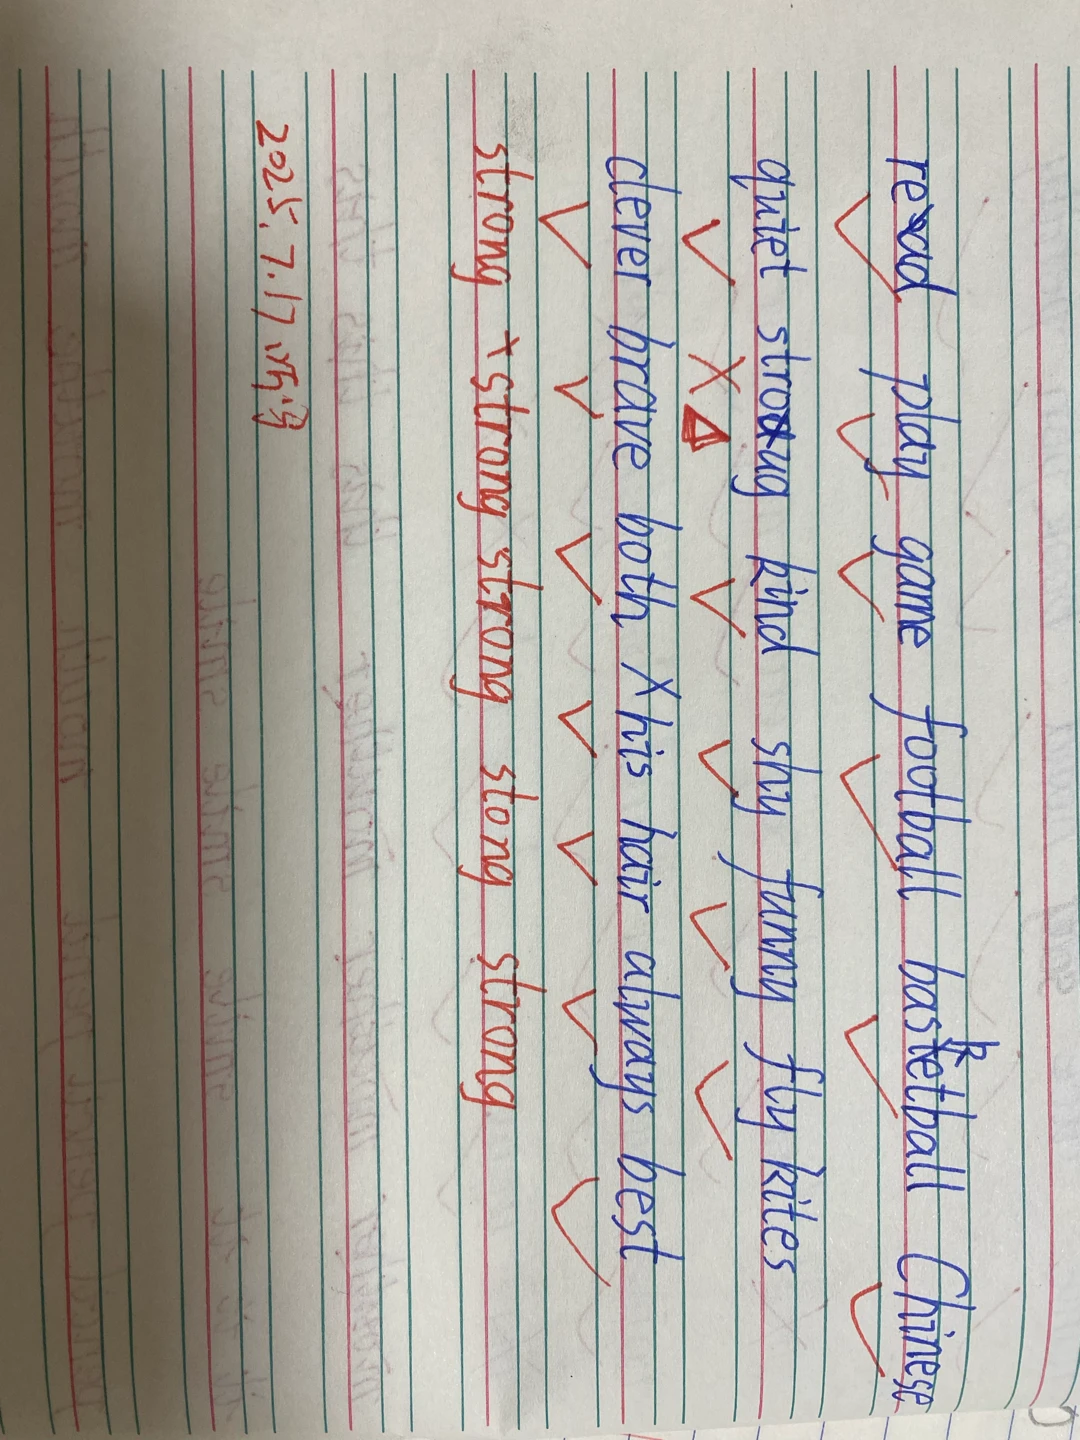 read play game football basketball Chinese
quiet stroug kind shy funny fly kites
clever brave both X his hair always best
strong × strong strong stong strong
2025.7.17